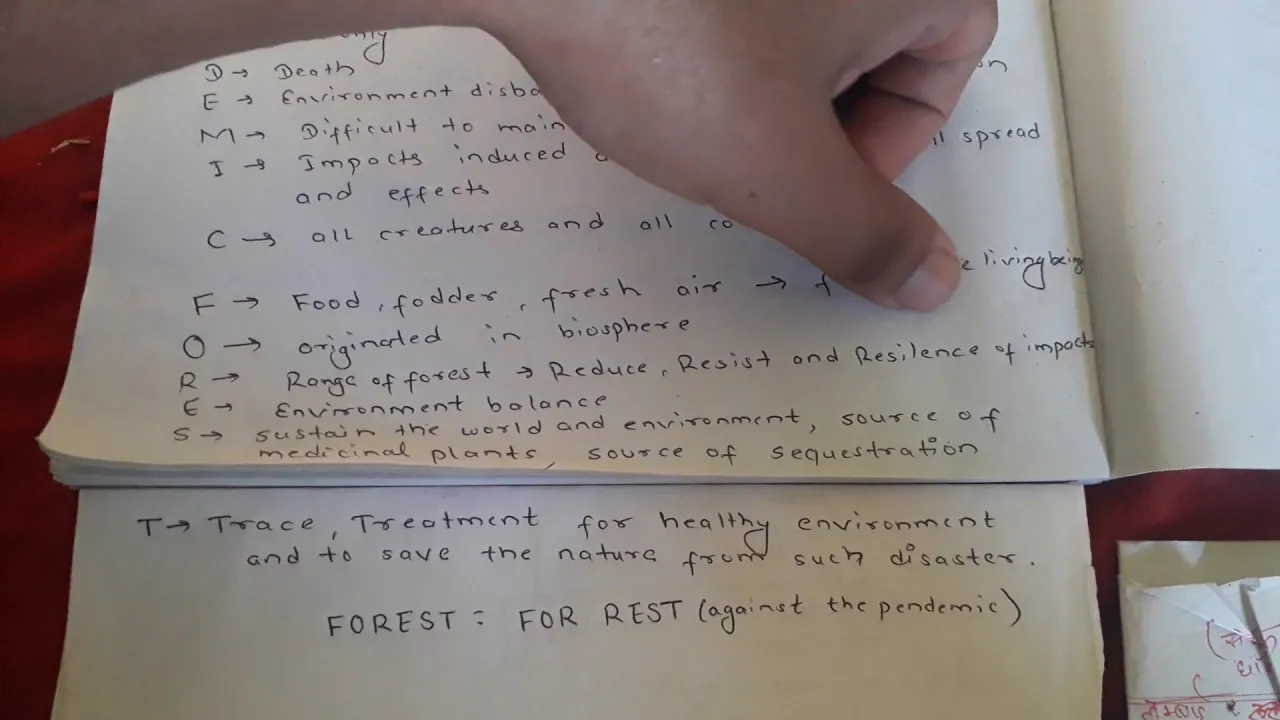 D → Death
E → Environment
on
M → Difficult to
spread
I → Impacts induced
and effects
C → all creatures and all
F → Food, fodder, fresh air → livingbeing
O → originated in biosphere
R → Range of forest → Reduce, Resist and Resilence of impacts
E → Environment balance
S → sustain the world and environment, source of
medicinal plants, source of sequestration
T → Trace, Treatment for healthy environment
and to save the nature from such disaster.
FOREST = FOR REST (against the pendemic)